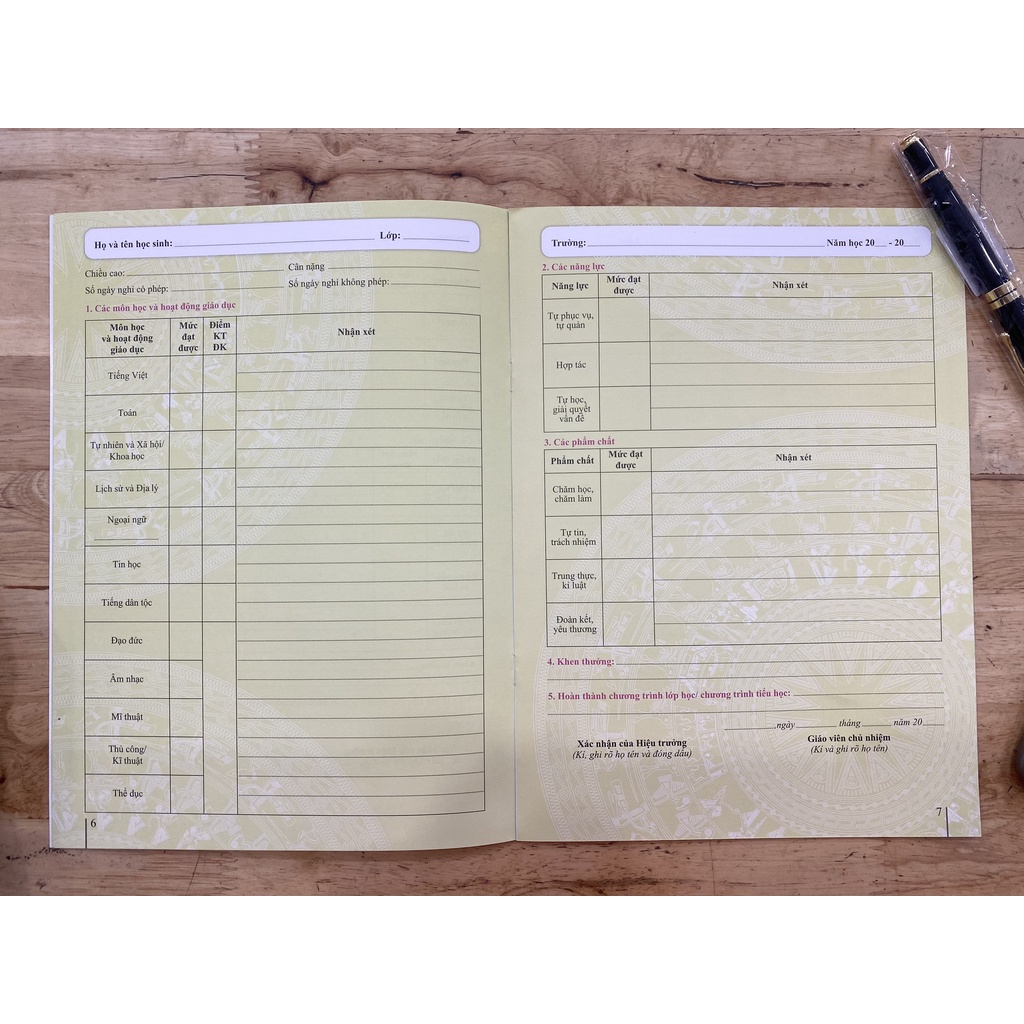 Họ và tên học sinh: Lớp:
Chiều cao: Cân nặng
Số ngày nghỉ có phép: Số ngày nghỉ không phép:
1. Các môn học và hoạt động giáo dục
Môn học
và hoạt động
giáo dục
Mức
đạt
được
Điểm
KT
ĐK
Nhận xét
Tiếng Việt
Toán
Tự nhiên và Xã hội/
Khoa học
Lịch sử và Địa lý
Ngoại ngữ
Tin học
Tiếng dân tộc
Đạo đức
Âm nhạc
Mĩ thuật
Thủ công/
Kĩ thuật
Thể dục
6
Trường: Năm học 20 - 20
2. Các năng lực
Năng lực
Mức đạt
được
Nhận xét
Tự phục vụ,
tự quản
Hợp tác
Tự học,
giải quyết
vấn đề
3. Các phẩm chất
Phẩm chất
Mức đạt
được
Nhận xét
Chăm học,
chăm làm
Tự tin,
trách nhiệm
Trung thực,
kỉ luật
Đoàn kết,
yêu thương
4. Khen thưởng:
5. Hoàn thành chương trình lớp học/ chương trình tiểu học:
,ngày tháng năm 20
Xác nhận của Hiệu trưởng
(Kí, ghi rõ họ tên và đóng dấu)
Giáo viên chủ nhiệm
(Kí và ghi rõ họ tên)
7